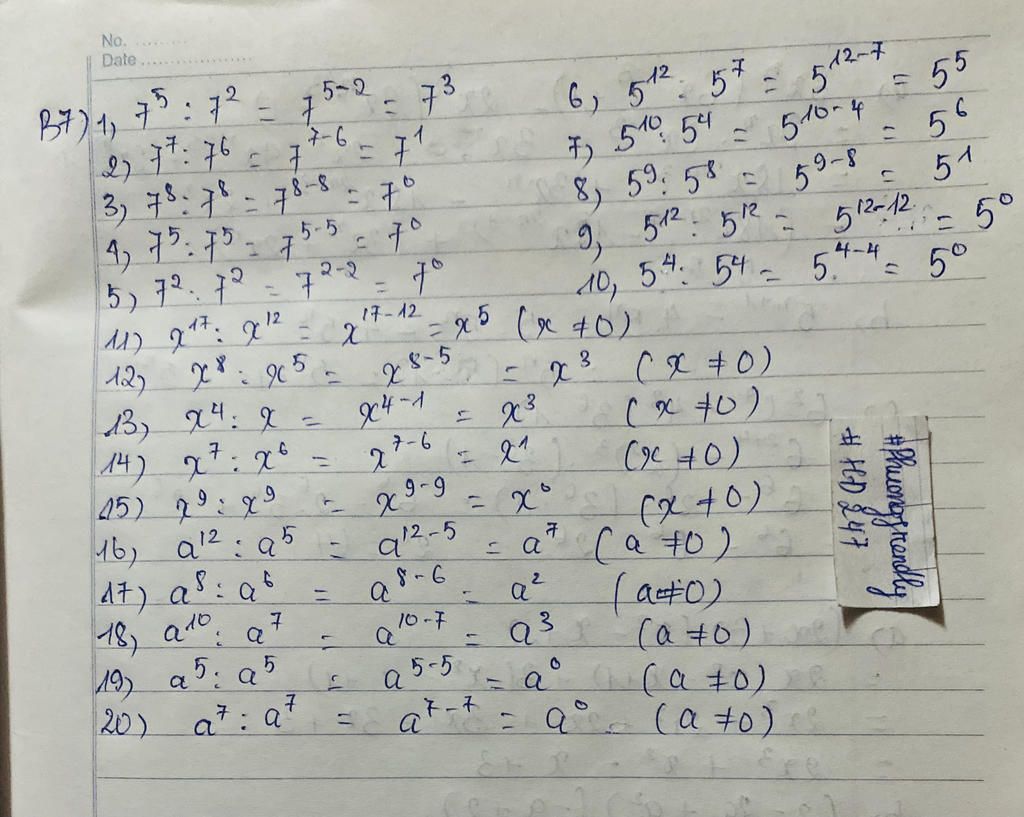 No. ........
Date ....................
B7) 1, 7⁵ : 7² = 7⁵⁻² = 7³
2) 7⁷ : 7⁶ = 7⁷⁻⁶ = 7¹
3, 7⁸ : 7⁸ = 7⁸⁻⁸ = 7⁰
4, 7⁵ : 7⁵ = 7⁵⁻⁵ = 7⁰
5) 7² : 7² = 7²⁻² = 7⁰
6, 5¹² : 5⁷ = 5¹²⁻⁷ = 5⁵
7, 5¹⁰ : 5⁴ = 5¹⁰⁻⁴ = 5⁶
8, 5⁹ : 5⁸ = 5⁹⁻⁸ = 5¹
9, 5¹² : 5¹² = 5¹²⁻¹² = 5⁰
10, 5⁴ : 5⁴ = 5⁴⁻⁴ = 5⁰
11) x¹⁷ : x¹² = x¹⁷⁻¹² = x⁵ (x ≠ 0)
12, x⁸ : x⁵ = x⁸⁻⁵ = x³ (x ≠ 0)
13, x⁴ : x = x⁴⁻¹ = x³ (x ≠ 0)
14) x⁷ : x⁶ = x⁷⁻⁶ = x¹ (x ≠ 0)
15) x⁹ : x⁹ = x⁹⁻⁹ = x⁰ (x ≠ 0)
16, a¹² : a⁵ = a¹²⁻⁵ = a⁷ (a ≠ 0)
17) a⁸ : a⁶ = a⁸⁻⁶ = a² (a ≠ 0)
18, a¹⁰ : a⁷ = a¹⁰⁻⁷ = a³ (a ≠ 0)
19) a⁵ : a⁵ = a⁵⁻⁵ = a⁰ (a ≠ 0)
20) a⁷ : a⁷ = a⁷⁻⁷ = a⁰ (a ≠ 0)
#Phuongfriendly
#HD247